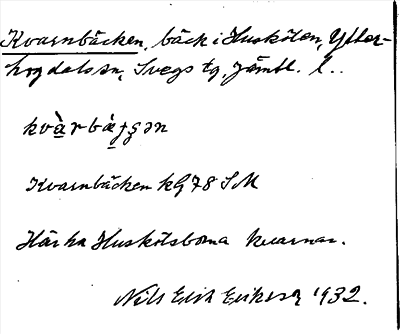 Kvarnbäcken, bäck i Huskölen, Ytter-
hogdals sn, Svegs tg, Jämtl. l..
kvàrbäʃʃən
Kvarnbäcken kG 78 SM
Här ha Huskölsborna kvarnar.
Nils Erik Eriksson 1932.